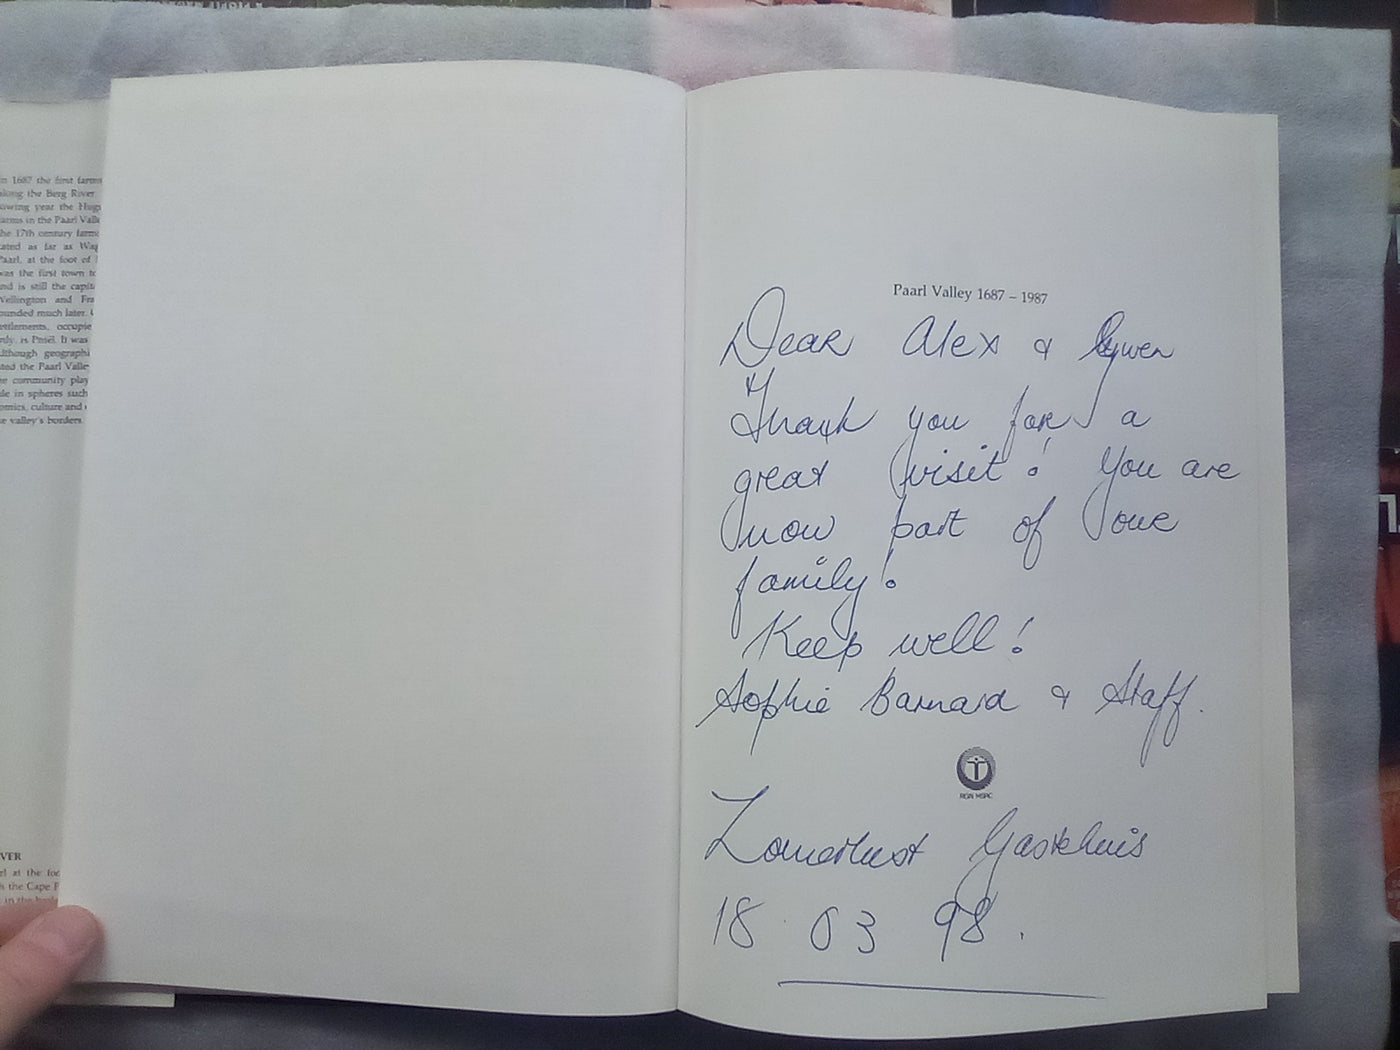 in 1687 the first farms
along the Berg River
owing year the Hug
farms in the Paarl Valle
the 17th century farms
cated as far as Wag
Paarl, at the foot of
was the first town to
and is still the capita
Wellington and Fra
ounded much later.
ettlements, occupie
rdy, is Pniël. It was
although geographi
ated the Paarl Valle
he community play
ole in spheres such
omics, culture and
he valley's borders.
VER
rl at the foo
h the Cape F
Paarl Valley 1687 – 1987
Dear Alex &
Thank you for a
great visit! You are
now part of our
family!
Keep well!
Sophie Barnard & Staff.
RGN HSRC
Zomerlust Gastehuis
18 03 98.